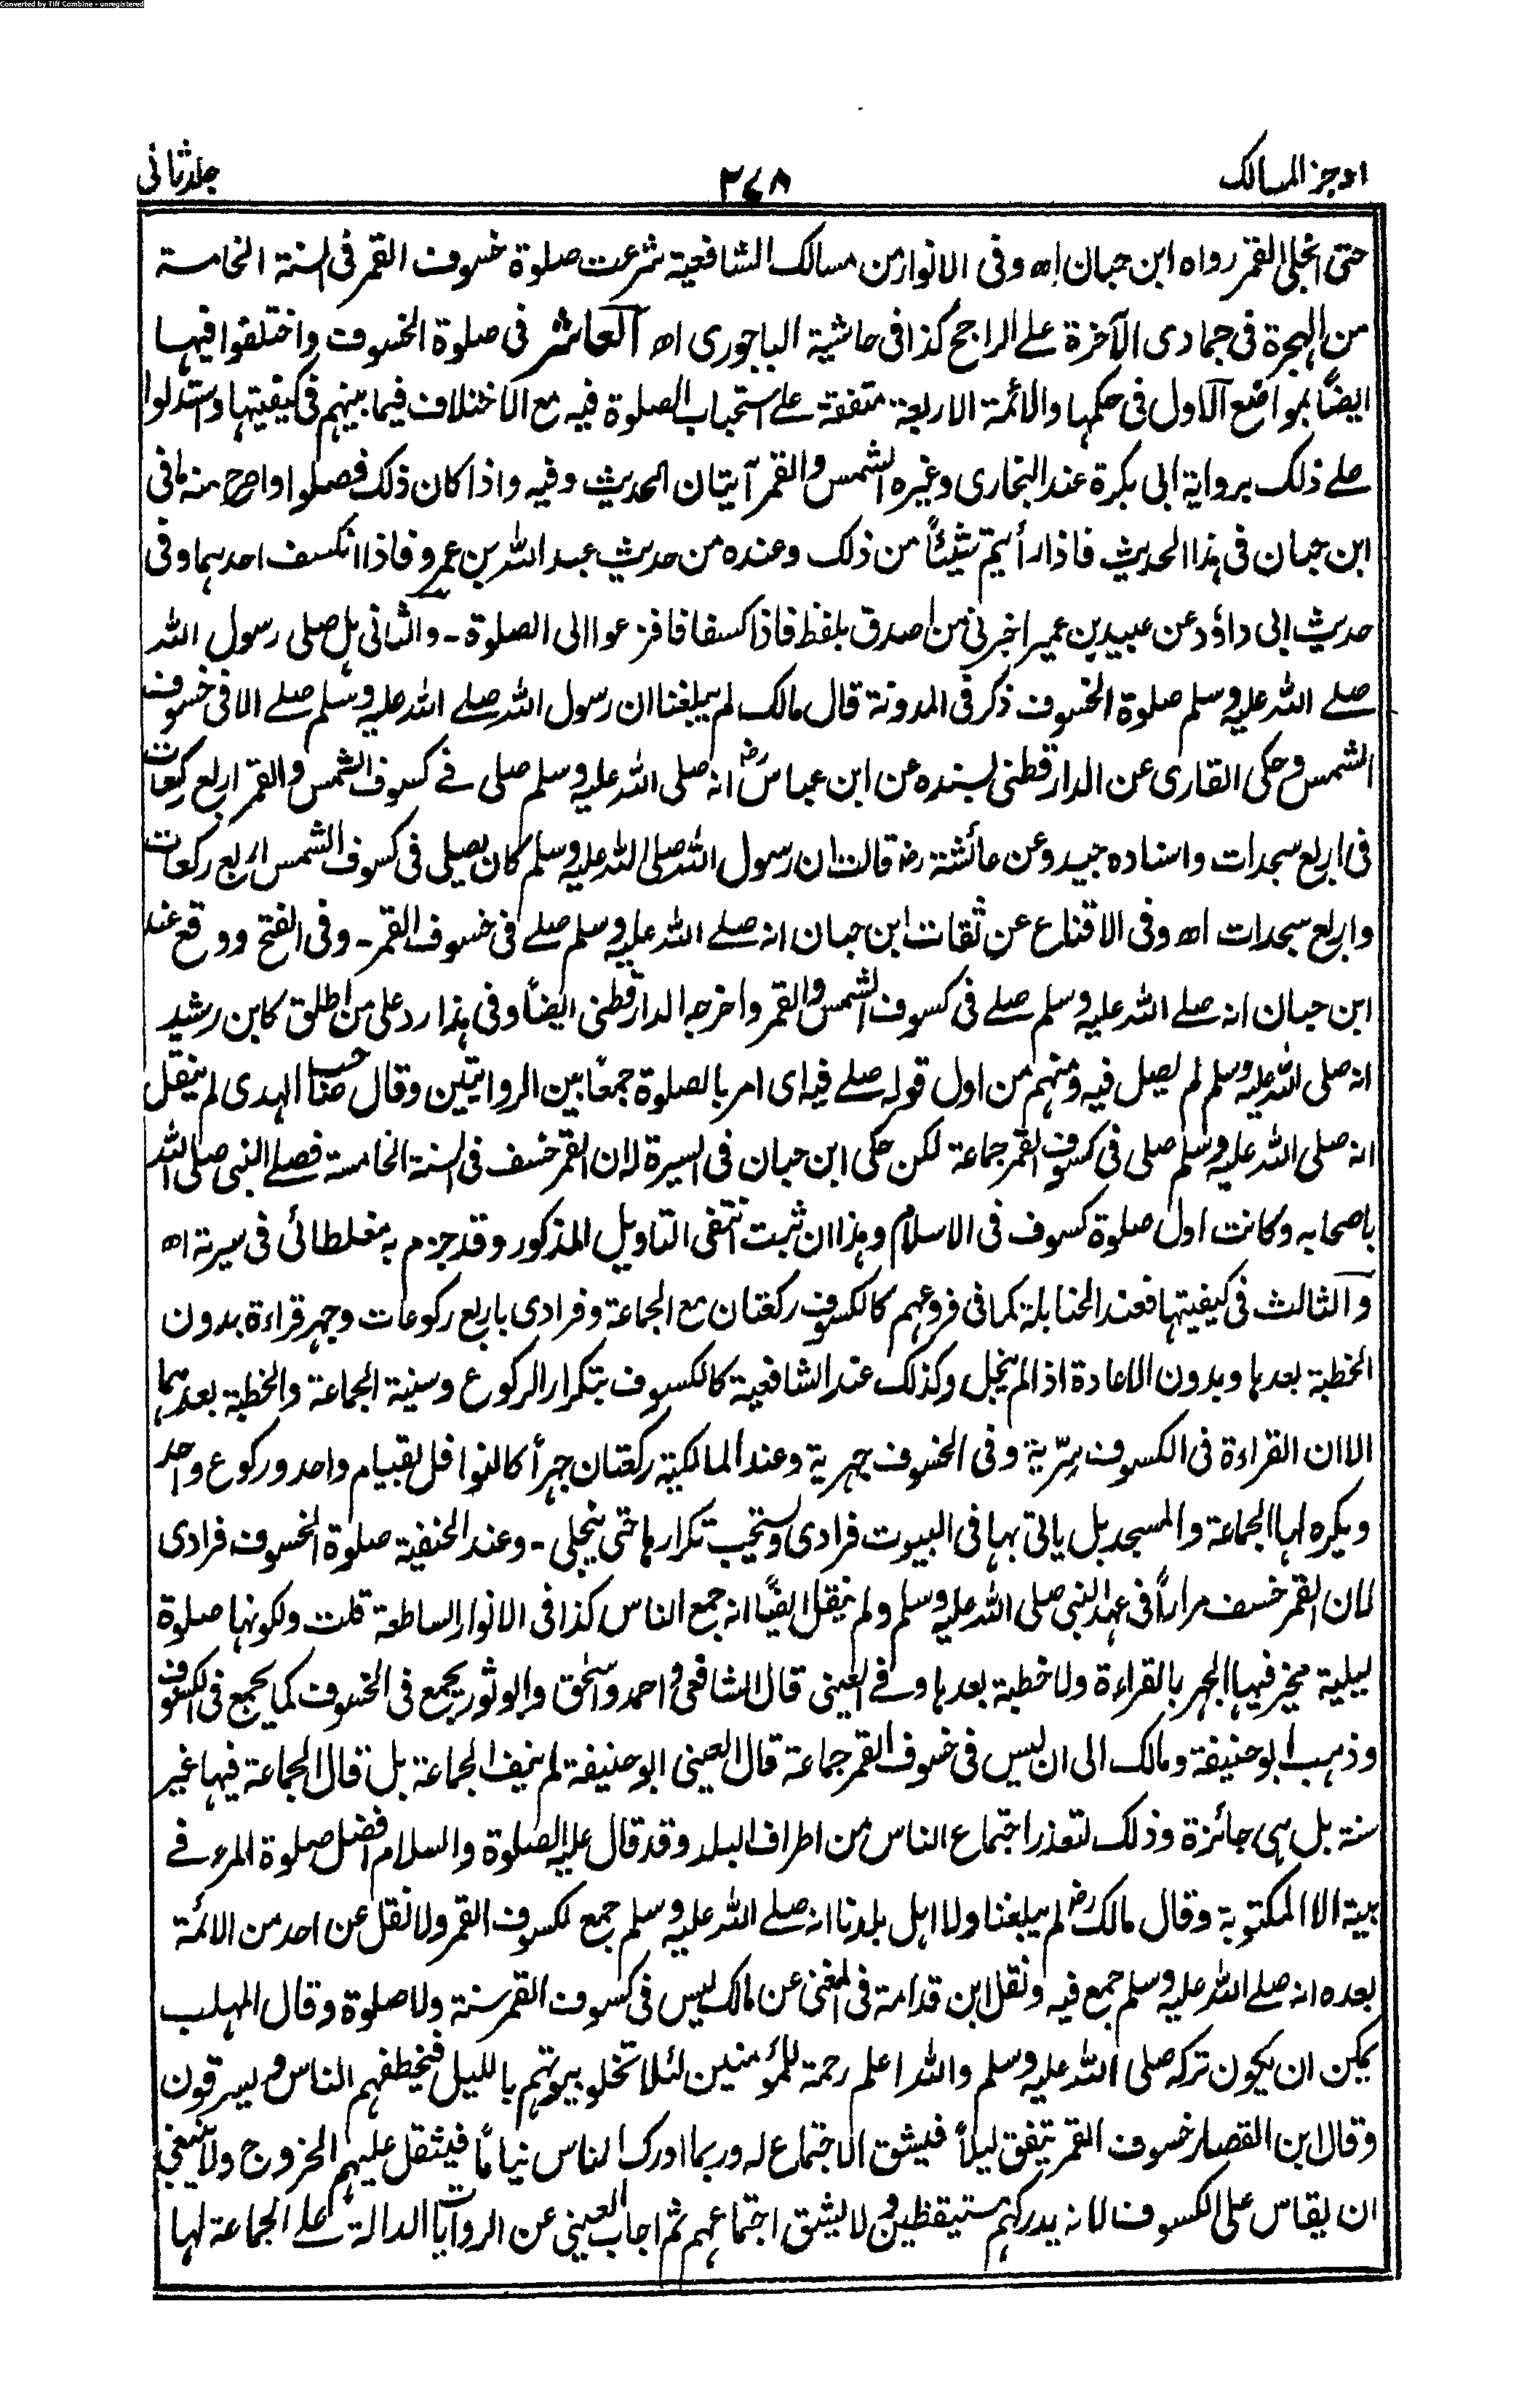 Converted by Tiff Combine - unregistered
اوجز المسالک
۲۷۸
جلد ثانی
حتی انجلی القمر رواہ ابن حبان اھ وفی الانوار من مسالک الشافعیة شرعت صلوة خسوف القمر فی السنة الخامسة
من الہجرة فی جمادی الآخرة علی الراجح کذا فی حاشیة الباجوری اھ العاشر فی صلوة الخسوف واختلفوا فیہا
ایضاً بمواضع الاول فی حکمہا والائمة الاربعة متفقة علی استحباب الصلوة فیہ مع الاختلاف فیما بینہم فی کیفیتہا واستدلوا
علی ذلک بروایة ابی بکرة عند البخاری وغیرہ الشمس والقمر آیتان الحدیث وفیہ واذا کان ذلک فصلوا واصرح منہ ما فی
ابن حبان فی ہذا الحدیث فاذا رأیتم شیئاً من ذلک وعندہ من حدیث عبد اللہ بن عمرو فاذا انکسف احدہما وفی
حدیث ابی داؤد عن عبید بن عمیر اخبرنی من اصدق بلفظ فاذا کسفا فافزعوا الی الصلوة ۔ والثانی ہل صلی رسول اللہ
صلے اللہ علیہ وسلم صلوة الخسوف ذکر فی المدونة قال مالک لم یبلغنا ان رسول اللہ صلے اللہ علیہ وسلم صلے الا فی خسوف
الشمس وحکی القاری عن الدارقطنی بسندہ عن ابن عباسؓ انہ صلی اللہ علیہ وسلم صلی فے کسوف الشمس والقمر اربع رکعات
فی اربع سجدات واسنادہ جید وعن عائشة رض قالت ان رسول اللہ صلی اللہ علیہ وسلم کان یصلی فی کسوف الشمس اربع رکعات
واربع سجدات اھ وفی الاقناع عن ثقات ابن حبان انہ صلے اللہ علیہ وسلم صلے فی خسوف القمر ۔ وفی الفتح ووقع عند
ابن حبان انہ صلے اللہ علیہ وسلم صلے فی کسوف الشمس والقمر واخرجہ الدارقطنی ایضاً وفی ہذا رد علی من اطلق کابن رشید
انہ صلی اللہ علیہ وسلم لم یصل فیہ ومنہم من اول قولہ صلے فیہ ای امر بالصلوة جمعاً بین الروایتین وقال صاحب الہدی لم ینقل
انہ صلی اللہ علیہ وسلم صلی فی کسوف القمر جماعة لکن حکی ابن حبان فی السیرة لہ ان القمر خسف فی السنة الخامسة فصلے النبی صلی اللہ
باصحابہ وکانت اول صلوة کسوف فی الاسلام وہذا ان ثبت انتفی التاویل المذکور وقد جزم بہ مغلطائی فی سیرتہ اھ
والثالث فی کیفیتہا فعند الحنابلة کما فی فروعہم کالکسوف رکعتان مع الجماعة وفرادی باربع رکوعات وجہر قراءة بدون
الخطبة بعدہا وبدون الاعادة اذا لم ینجل وکذلک عند الشافعیة کالکسوف بتکرار الرکوع وسنیة الجماعة والخطبة بعدہما
الا ان القراءة فی الکسوف سِرّیة وفی الخسوف جہریة وعند المالکیة رکعتان جہراً کالنوافل بقیام واحد ورکوع واحد
ویکرہ لہا الجماعة والمسجد بل یاتی بہا فی البیوت فرادی ویستحب تکرارہا حتی ینجلی ۔ وعند الحنفیة صلوة الخسوف فرادی
لان القمر خسف مراراً فی عہد النبی صلی اللہ علیہ وسلم ولم ینقل ایضاً انہ جمع الناس کذا فی الانوار الساطعة قلت ولکونہا صلوة
لیلیة یخیر فیہا الجہر بالقراءة ولا خطبة بعدہا وفے العینی قال الشافعی واحمد واسحٰق وابو ثور یجمع فی الخسوف کما یجمع فی الکسوف
وذہب ابو حنیفة ومالک الی ان لیس فی خسوف القمر جماعة قال العینی ابو حنیفة لم ینف الجماعة بل قال الجماعة فیہا غیر
سنة بل ہی جائزة وذلک لتعذر اجتماع الناس من اطراف البلد وقد قال علیہ الصلوة والسلام افضل صلوة المرء فے
بیتہ الا المکتوبة وقال مالک رض لم یبلغنا ولا اہل بلدنا انہ صلے اللہ علیہ وسلم جمع لکسوف القمر ولا نقل عن احد من الائمة
بعدہ انہ صلے اللہ علیہ وسلم جمع فیہ ونقل ابن قدامة فی المغنی عن مالک لیس فی کسوف القمر سنة ولا صلوة وقال المہلب
یمکن ان یکون ترکہ صلی اللہ علیہ وسلم واللہ اعلم رحمة للمؤمنین لئلا تخلو بیوتہم باللیل فیخطفہم الناس ویسرقون
وقال ابن القصار خسوف القمر یتفق لیلاً فیشق الاجتماع لہ وربما ادرک الناس نیاماً فیثقل علیہم الخروج ولا ینبغی
ان یقاس علی الکسوف لانہ یدرکہم مستیقظین ولا یشق اجتماعہم ثم اجاب العینی عن الروایات الدالة علے الجماعة لہا